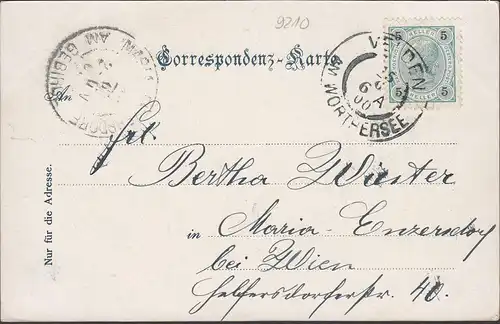 9210
Correspondenz-Karte
5 5
5 5
VELDEN
6 00
AM WÖRTHERSEE
MARIA ENZERSDORF
AM GEBIRGE
An
Frl.
Bertha Winter
in Maria-Enzersdorf
bei Wien
Helfersdorferstr. 40.
Nur für die Adresse.